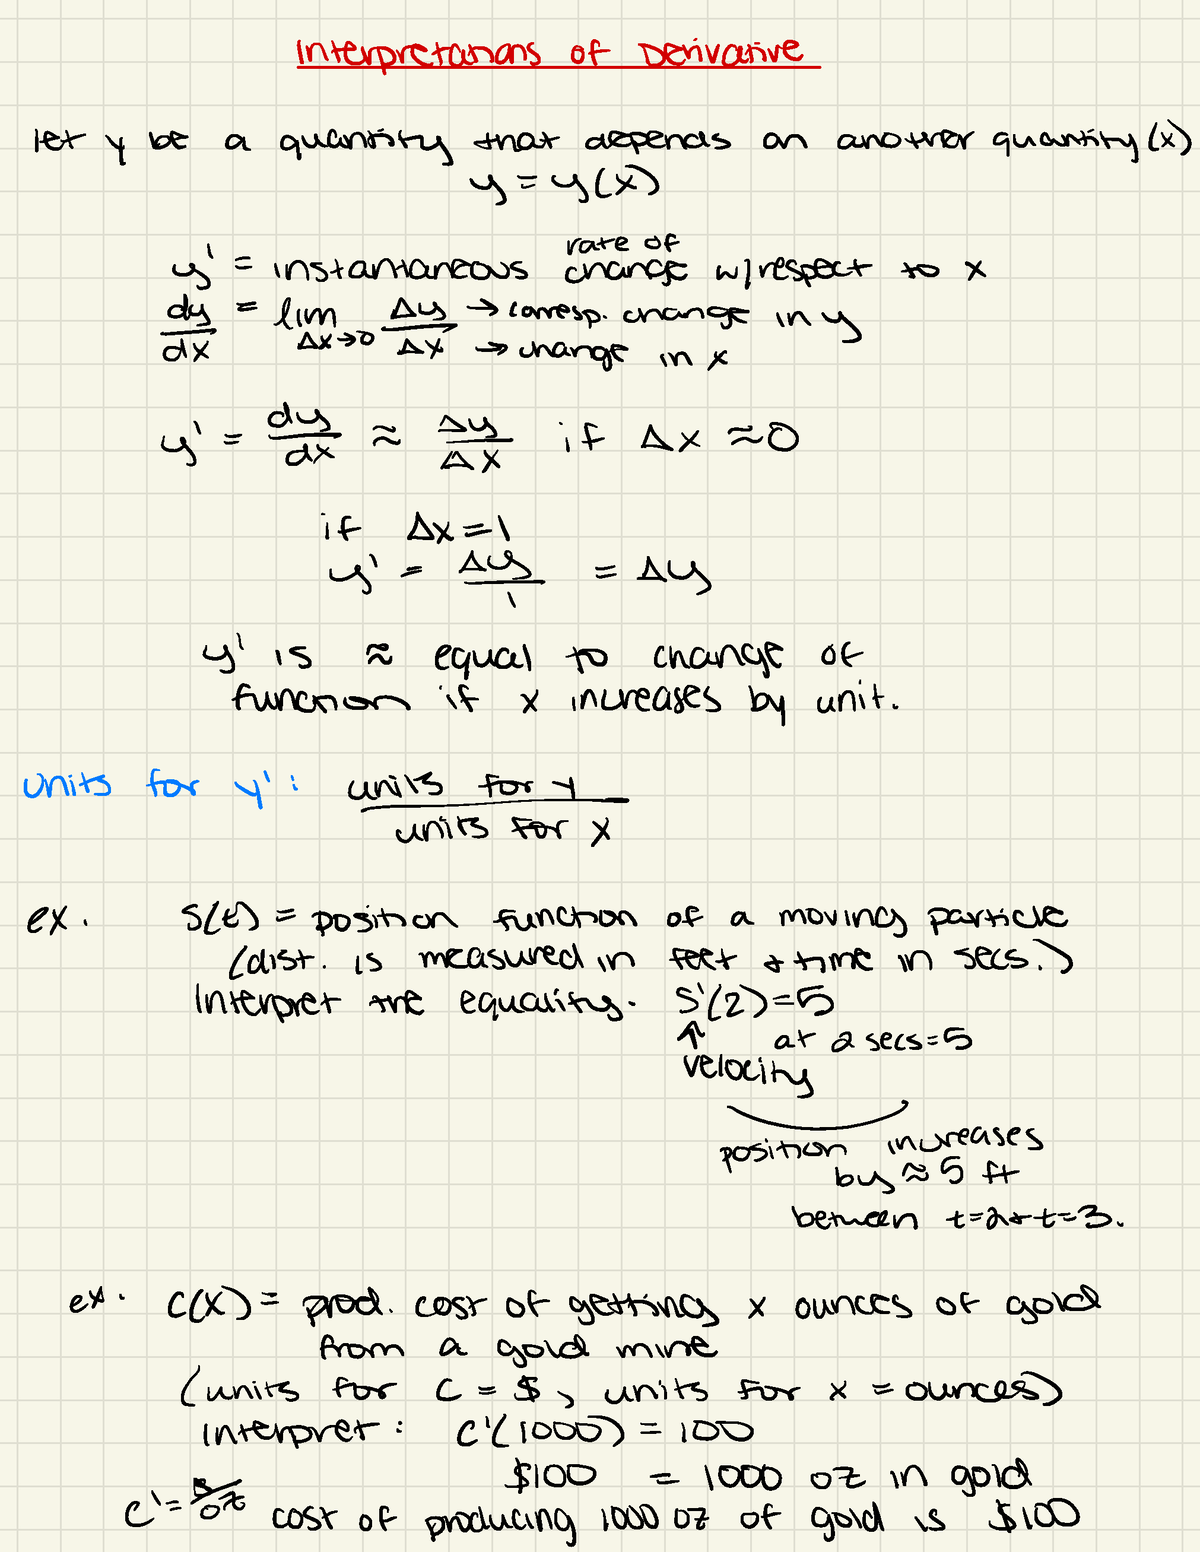 Interpretations of Derivative
let y be a quantity that depends on another quantity (x)
y = y(x)
y' = instantaneous rate of change w/respect to x
dy/dx = lim Δx→0 Δy/Δx → corresp. change in y
→ change in x
y' = dy/dx ≈ Δy/Δx if Δx ≈ 0
if Δx = 1
y' = Δy/1 = Δy
y' is ≈ equal to change of
function if x increases by unit.
units for y': units for y
units for x
ex. S(t) = position function of a moving particle
(dist. is measured in feet & time in secs.)
Interpret the equality. S'(2) = 5
↑ at 2 secs = 5
velocity
position increases
by ≈ 5 ft
between t=2 & t=3.
ex. C(x) = prod. cost of getting x ounces of gold
from a gold mine
(units for C = $, units for x = ounces)
interpret: C'(1000) = 100
$100 = 1000 oz in gold
C' = $/oz cost of producing 1000 oz of gold is $100